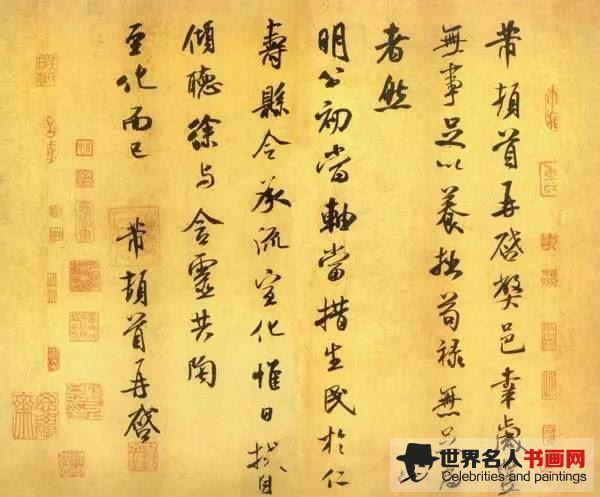 芾頓首再啓弊邑幸歲豐
無事足以養拙苟祿無足為
者然
明公初當軸當措生民於仁
壽縣令承流宣化惟日拭目
傾聽徐與含靈共陶
至化而已 芾頓首再啓
世界名人书画网
Celebrities and paintings